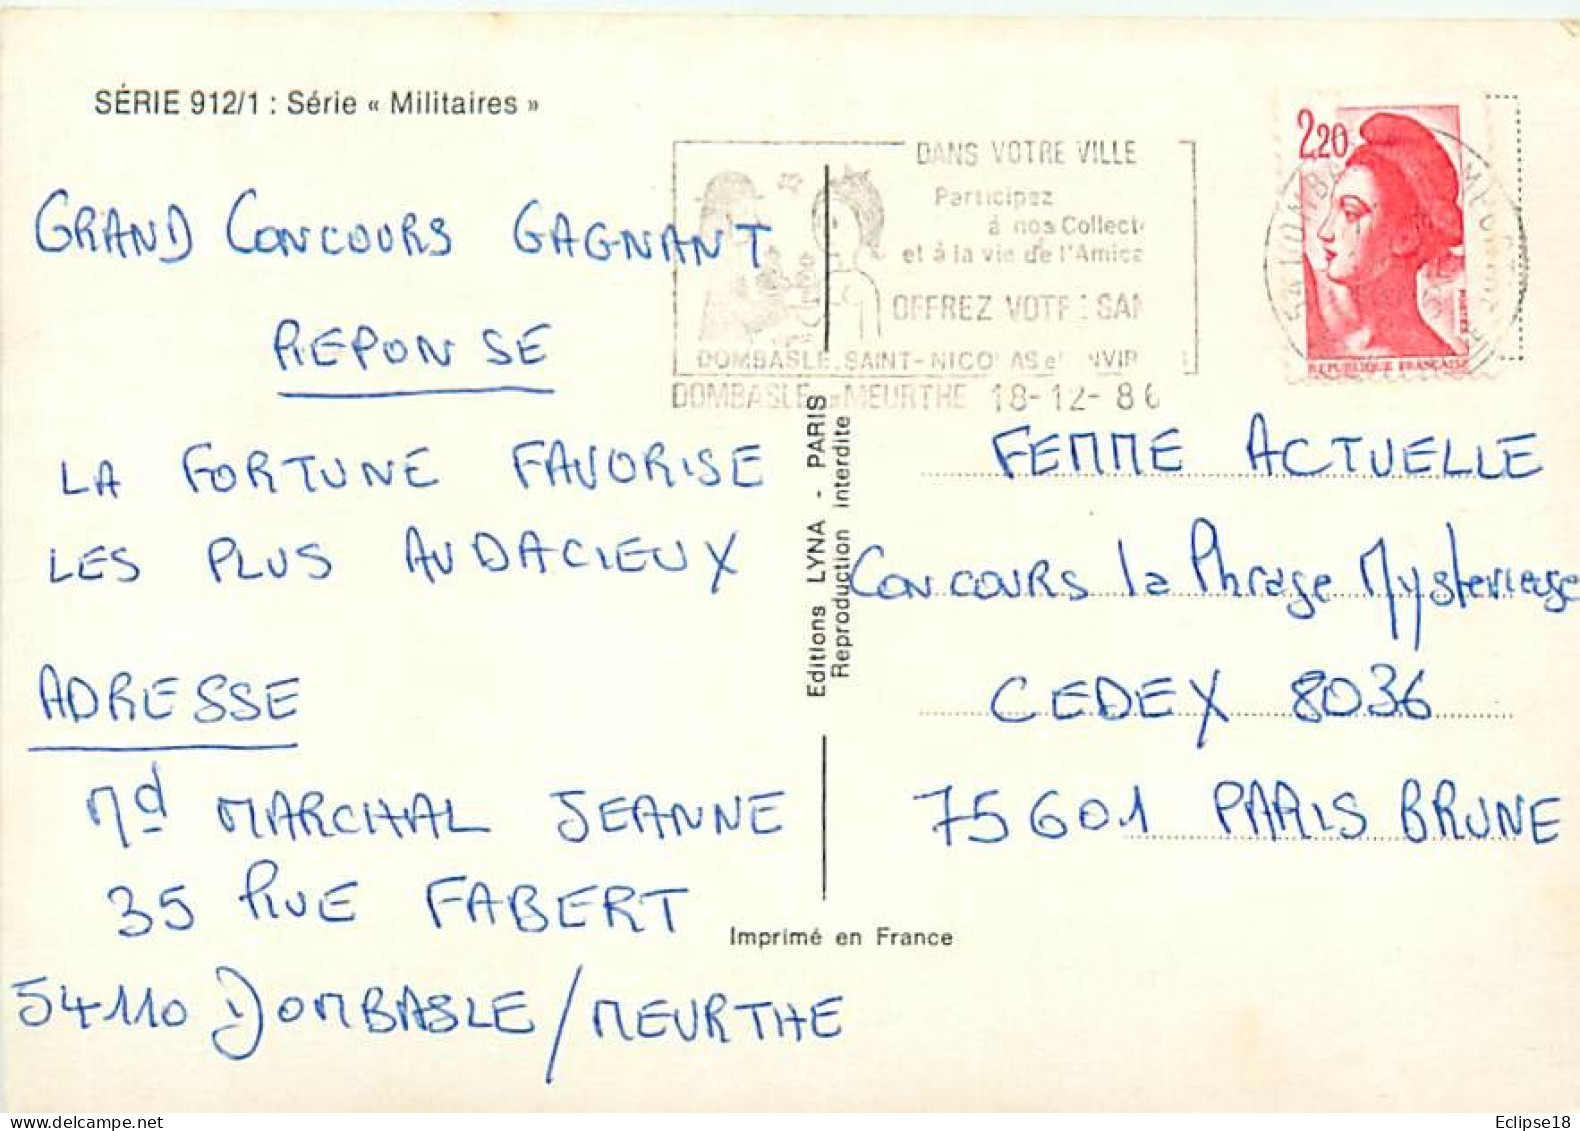 SÉRIE 912/1 : Série « Militaires »
GRAND CONCOURS GAGNANT
REPONSE
LA FORTUNE FAVORISE
LES PLUS AUDACIEUX
ADRESSE
Md MARCHAL JEANNE
35 RUE FABERT
54110 DOMBASLE/MEURTHE
DANS VOTRE VILLE
Participez
à nos Collect
et à la vie de l'Amica
OFFREZ VOTRE SAN
DOMBASLE, SAINT-NICOLAS et ENVIR
DOMBASLE MEURTHE 18-12-86
2,20
POSTES
REPUBLIQUE FRANÇAISE
Editions LYNA - PARIS
Reproduction interdite
FEMME ACTUELLE
CONCOURS la Phrase Mysterieuse
CEDEX 8036
75601 PARIS BRUNE
Imprimé en France
Eclipse18